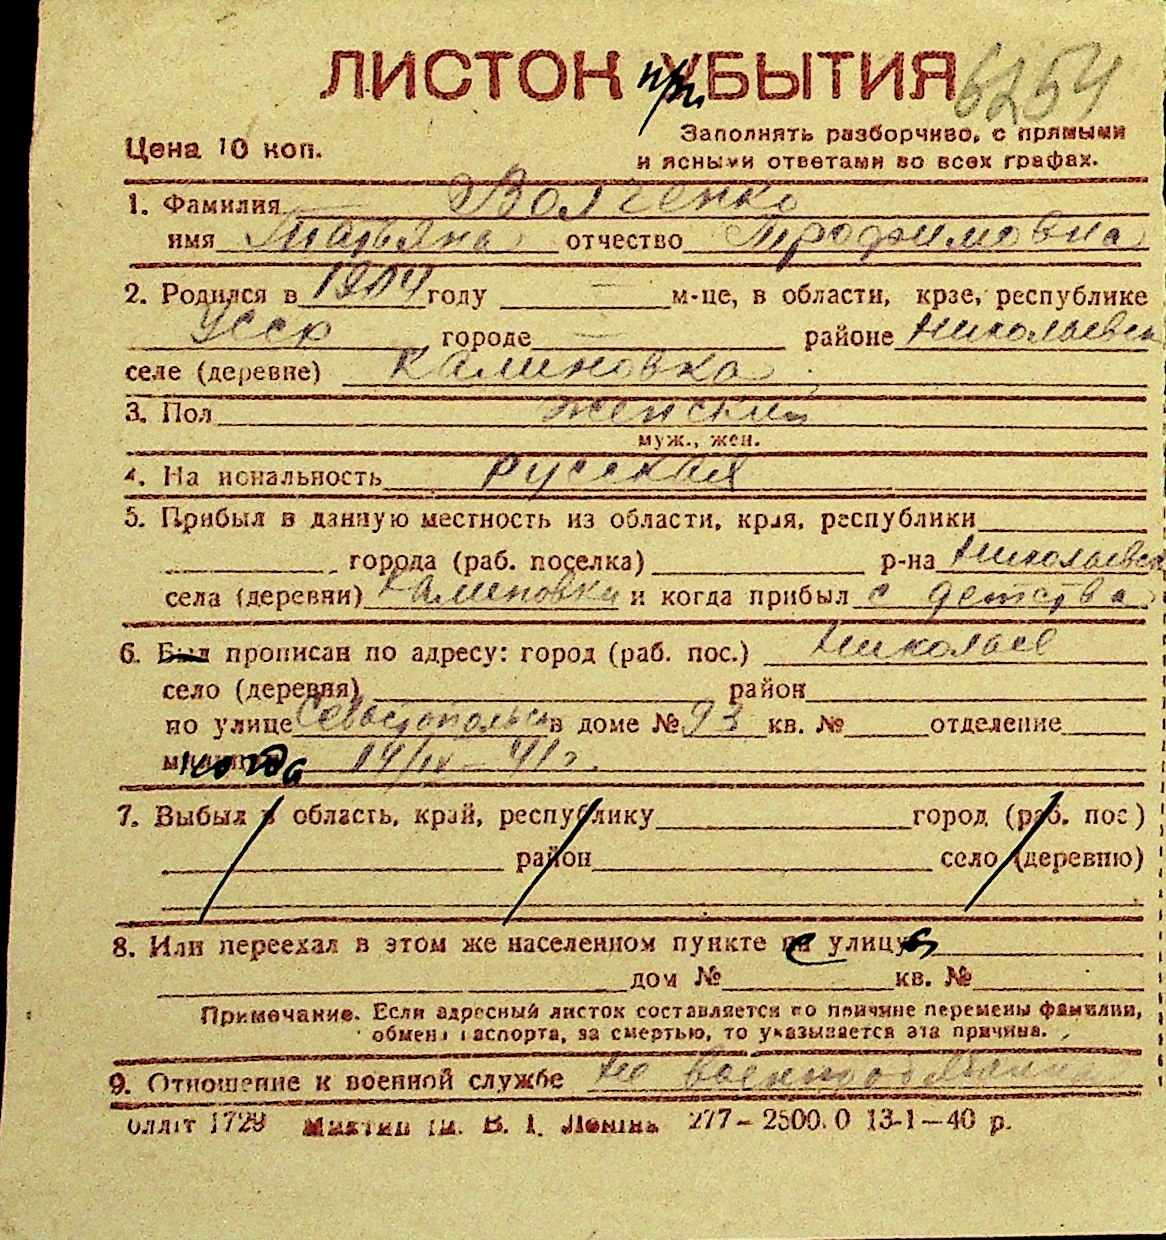 ЛИСТОК при УБЫТИЯ 6254
Цена 10 коп.
Заполнять разборчиво, с прямыми
и ясными ответами во всех графах.
1. Фамилия Волченко
имя Татьяна отчество Трофимовна
2. Родился в 1904 году — м-це, в области, крае, республике
Усср городе — районе Николаевск
селе (деревне) Калиновка
3. Пол женский
муж., жен.
4. На иональность русская
5. Прибыл в данную местность из области, края, республики
города (раб. поселка) р-на Николаевск
села (деревни) Калиновки и когда прибыл с детства
6. Был прописан по адресу: город (раб. пос.) Николаев
село (деревня) район
по улице Севастопольск в доме № 93 кв. № отделение
когда 14/IX – 41 г.
7. Выбыл в область, край, республику город (раб. пос)
район село (деревню)
8. Или переехал в этом же населенном пункте с улицы
дом № кв. №
Примечание. Если адресный листок составляется по причине перемены фамилии,
обмена паспорта, за смертью, то указывается эта причина.
9. Отношение к военной службе не военнообязанная
1729 В. І. Леніна 277–2500.0 13-1–40 р.